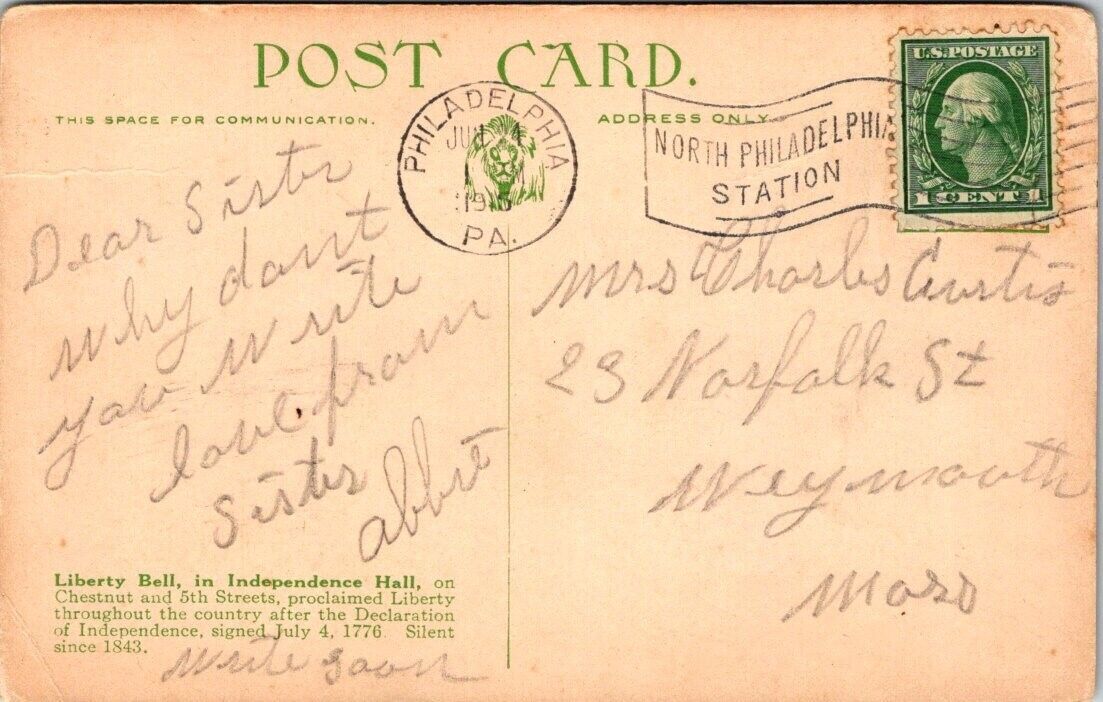 POST CARD.
THIS SPACE FOR COMMUNICATION.
ADDRESS ONLY.
PHILADELPHIA
PA.
NORTH PHILADELPHIA
STATION
U.S. POSTAGE
1 CENT 1
Dear Sister
Why dont
you write
love from
Sister
Write soon
Mrs Charles Curtis
23 Norfolk St
Weymouth
Mass
Liberty Bell, in Independence Hall, on
Chestnut and 5th Streets, proclaimed Liberty
throughout the country after the Declaration
of Independence, signed July 4, 1776. Silent
since 1843.